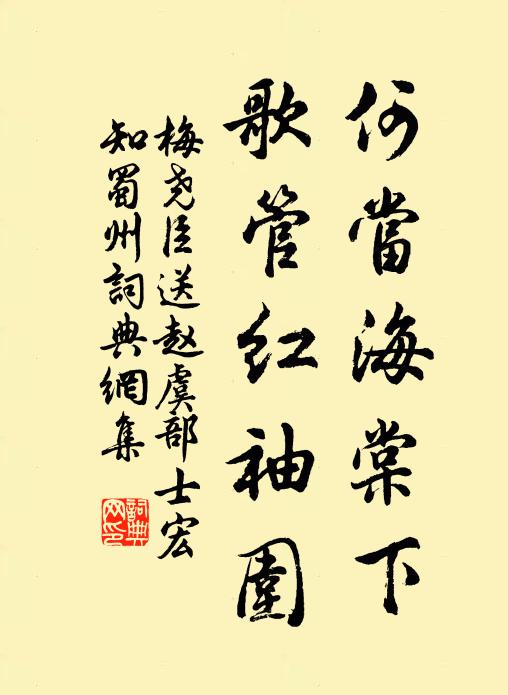 何當海棠下
歌管紅袖圍
梅尧臣送赵虞部士宏
知蜀州詞典網集
詞典网印